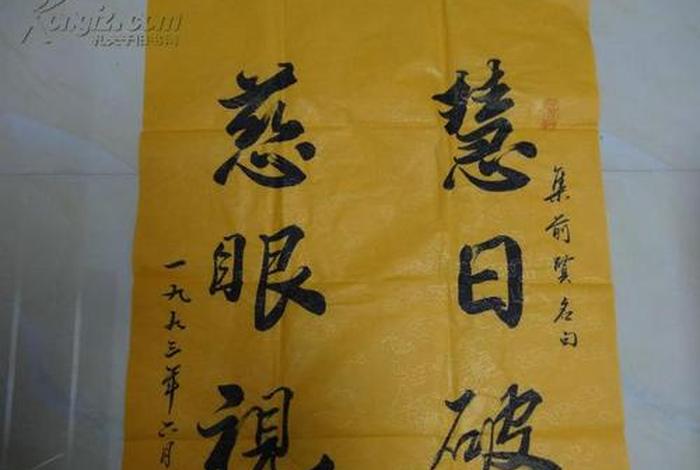 Kongfz.com
孔夫子旧书网
集前贤名句
慧日破
慈眼視
一九九三年六月